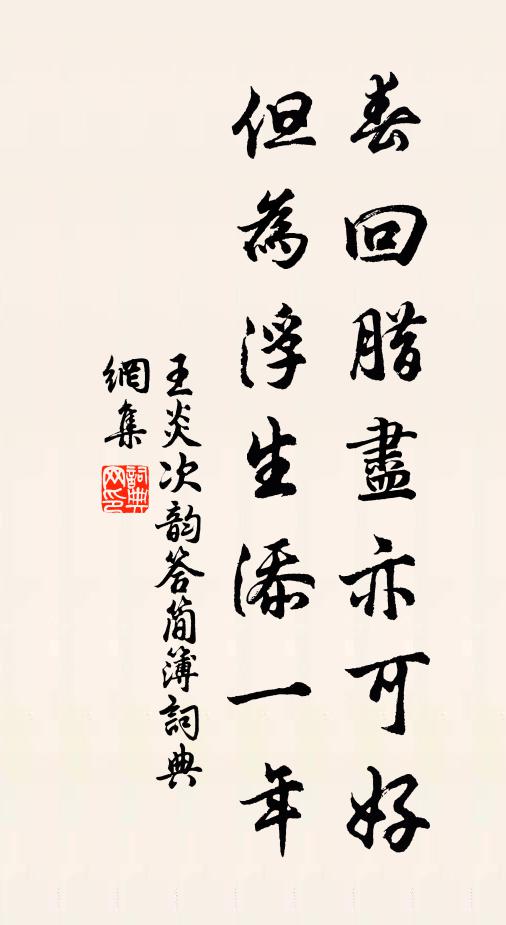 春回腊盡亦可好
但為浮生添一年
王炎次韵答简簿詞典
網集
詞典網印